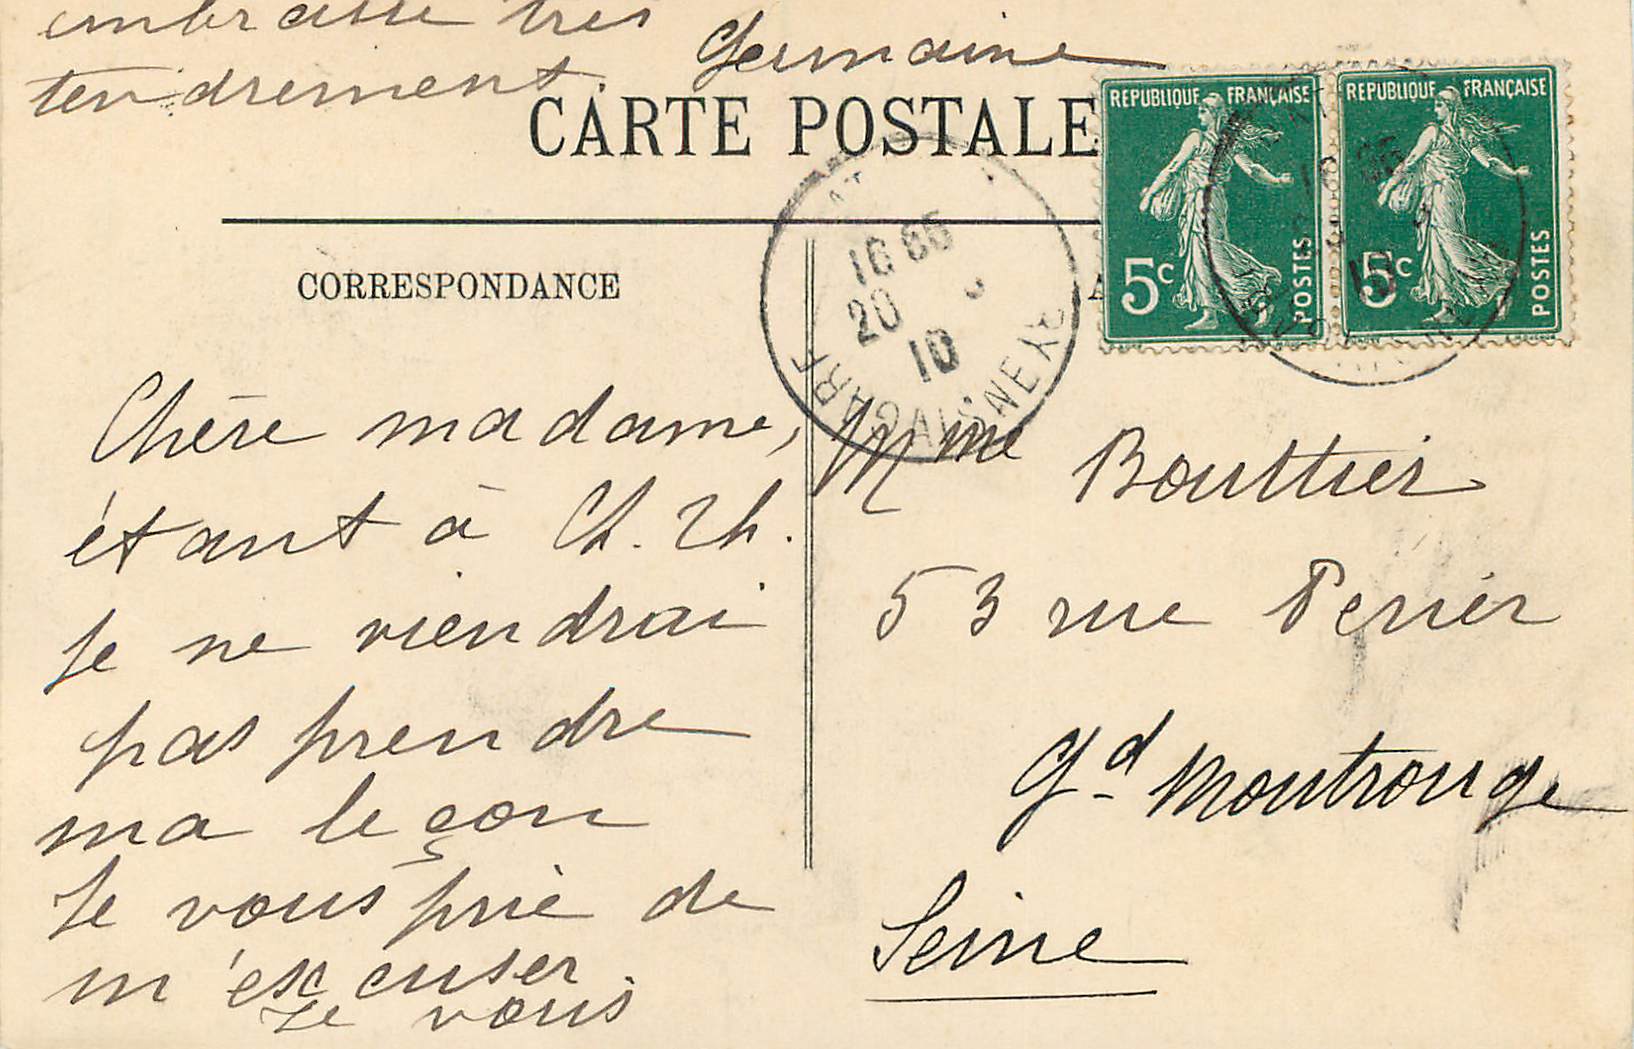 embrasse très
tendrement. Germaine
CARTE POSTALE
REPUBLIQUE FRANÇAISE
5c POSTES
REPUBLIQUE FRANÇAISE
5c POSTES
16
20
10
AISNE
CORRESPONDANCE
A
Chère madame,
étant à Ch. Th.
Je ne viendrai
pas prendre
ma leçon
Je vous prie de
m'excuser.
Je vous
Mme Bouttier
53 rue Perier
Gd Montrouge
Seine